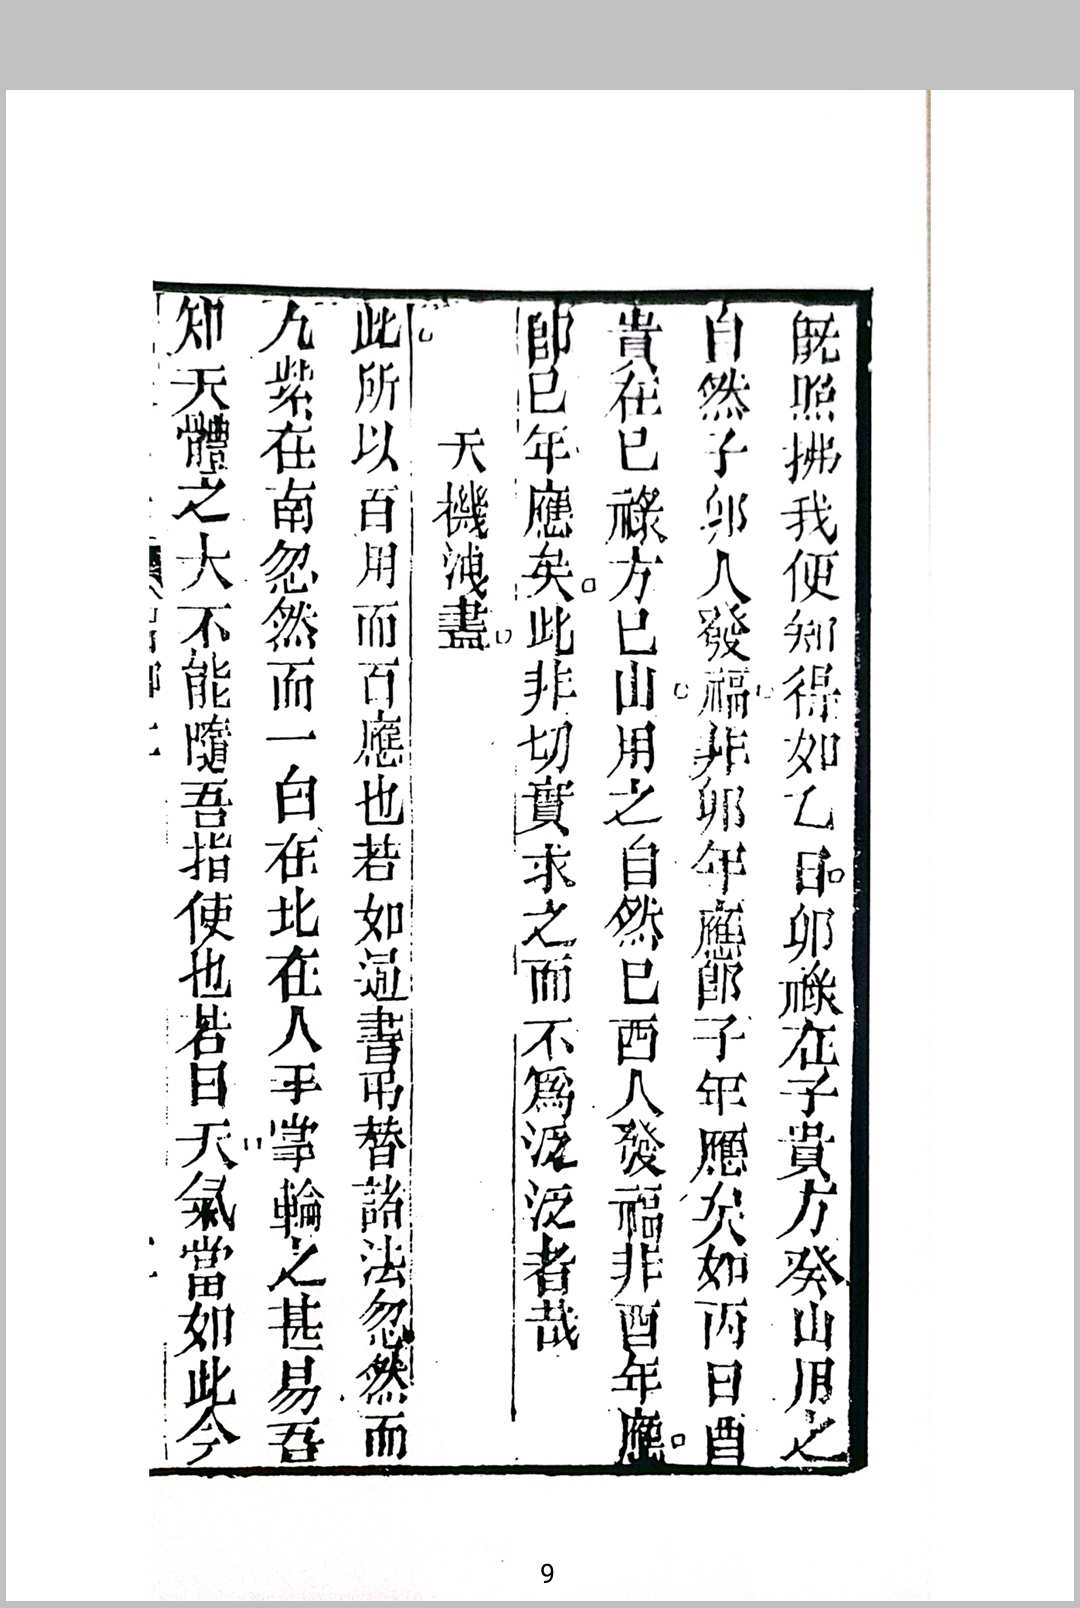 既照拂我便知得如乙日卯祿在子貴方癸山用之
自然子卯人發福非卯年應郎子年應矣如丙日酉
貴在巳祿方巳山用之自然巳酉人發福非酉年應
郎巳年應矣此非切實求之而不爲泛泛者哉
天機洩盡
此所以百用而百應也若如通書吊替諸法忽然而
九紫在南忽然而一白在北在人手掌輪之甚易吾
知天體之大不能隨吾指使也若曰天氣當如此今
9